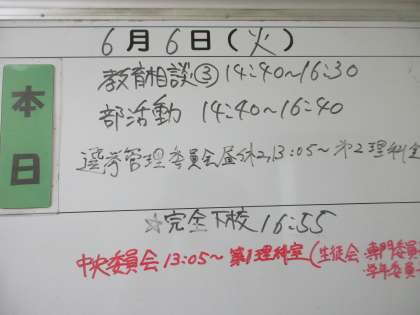 6月6日(火)
本日
教育相談③ 14:40~16:30
部活動 14:40~16:40
選挙管理委員会昼休み13:05~第2理科室
☆完全下校 16:55
中央委員会 13:05~ 第1理科室(生徒会・専門委員
・学年委員